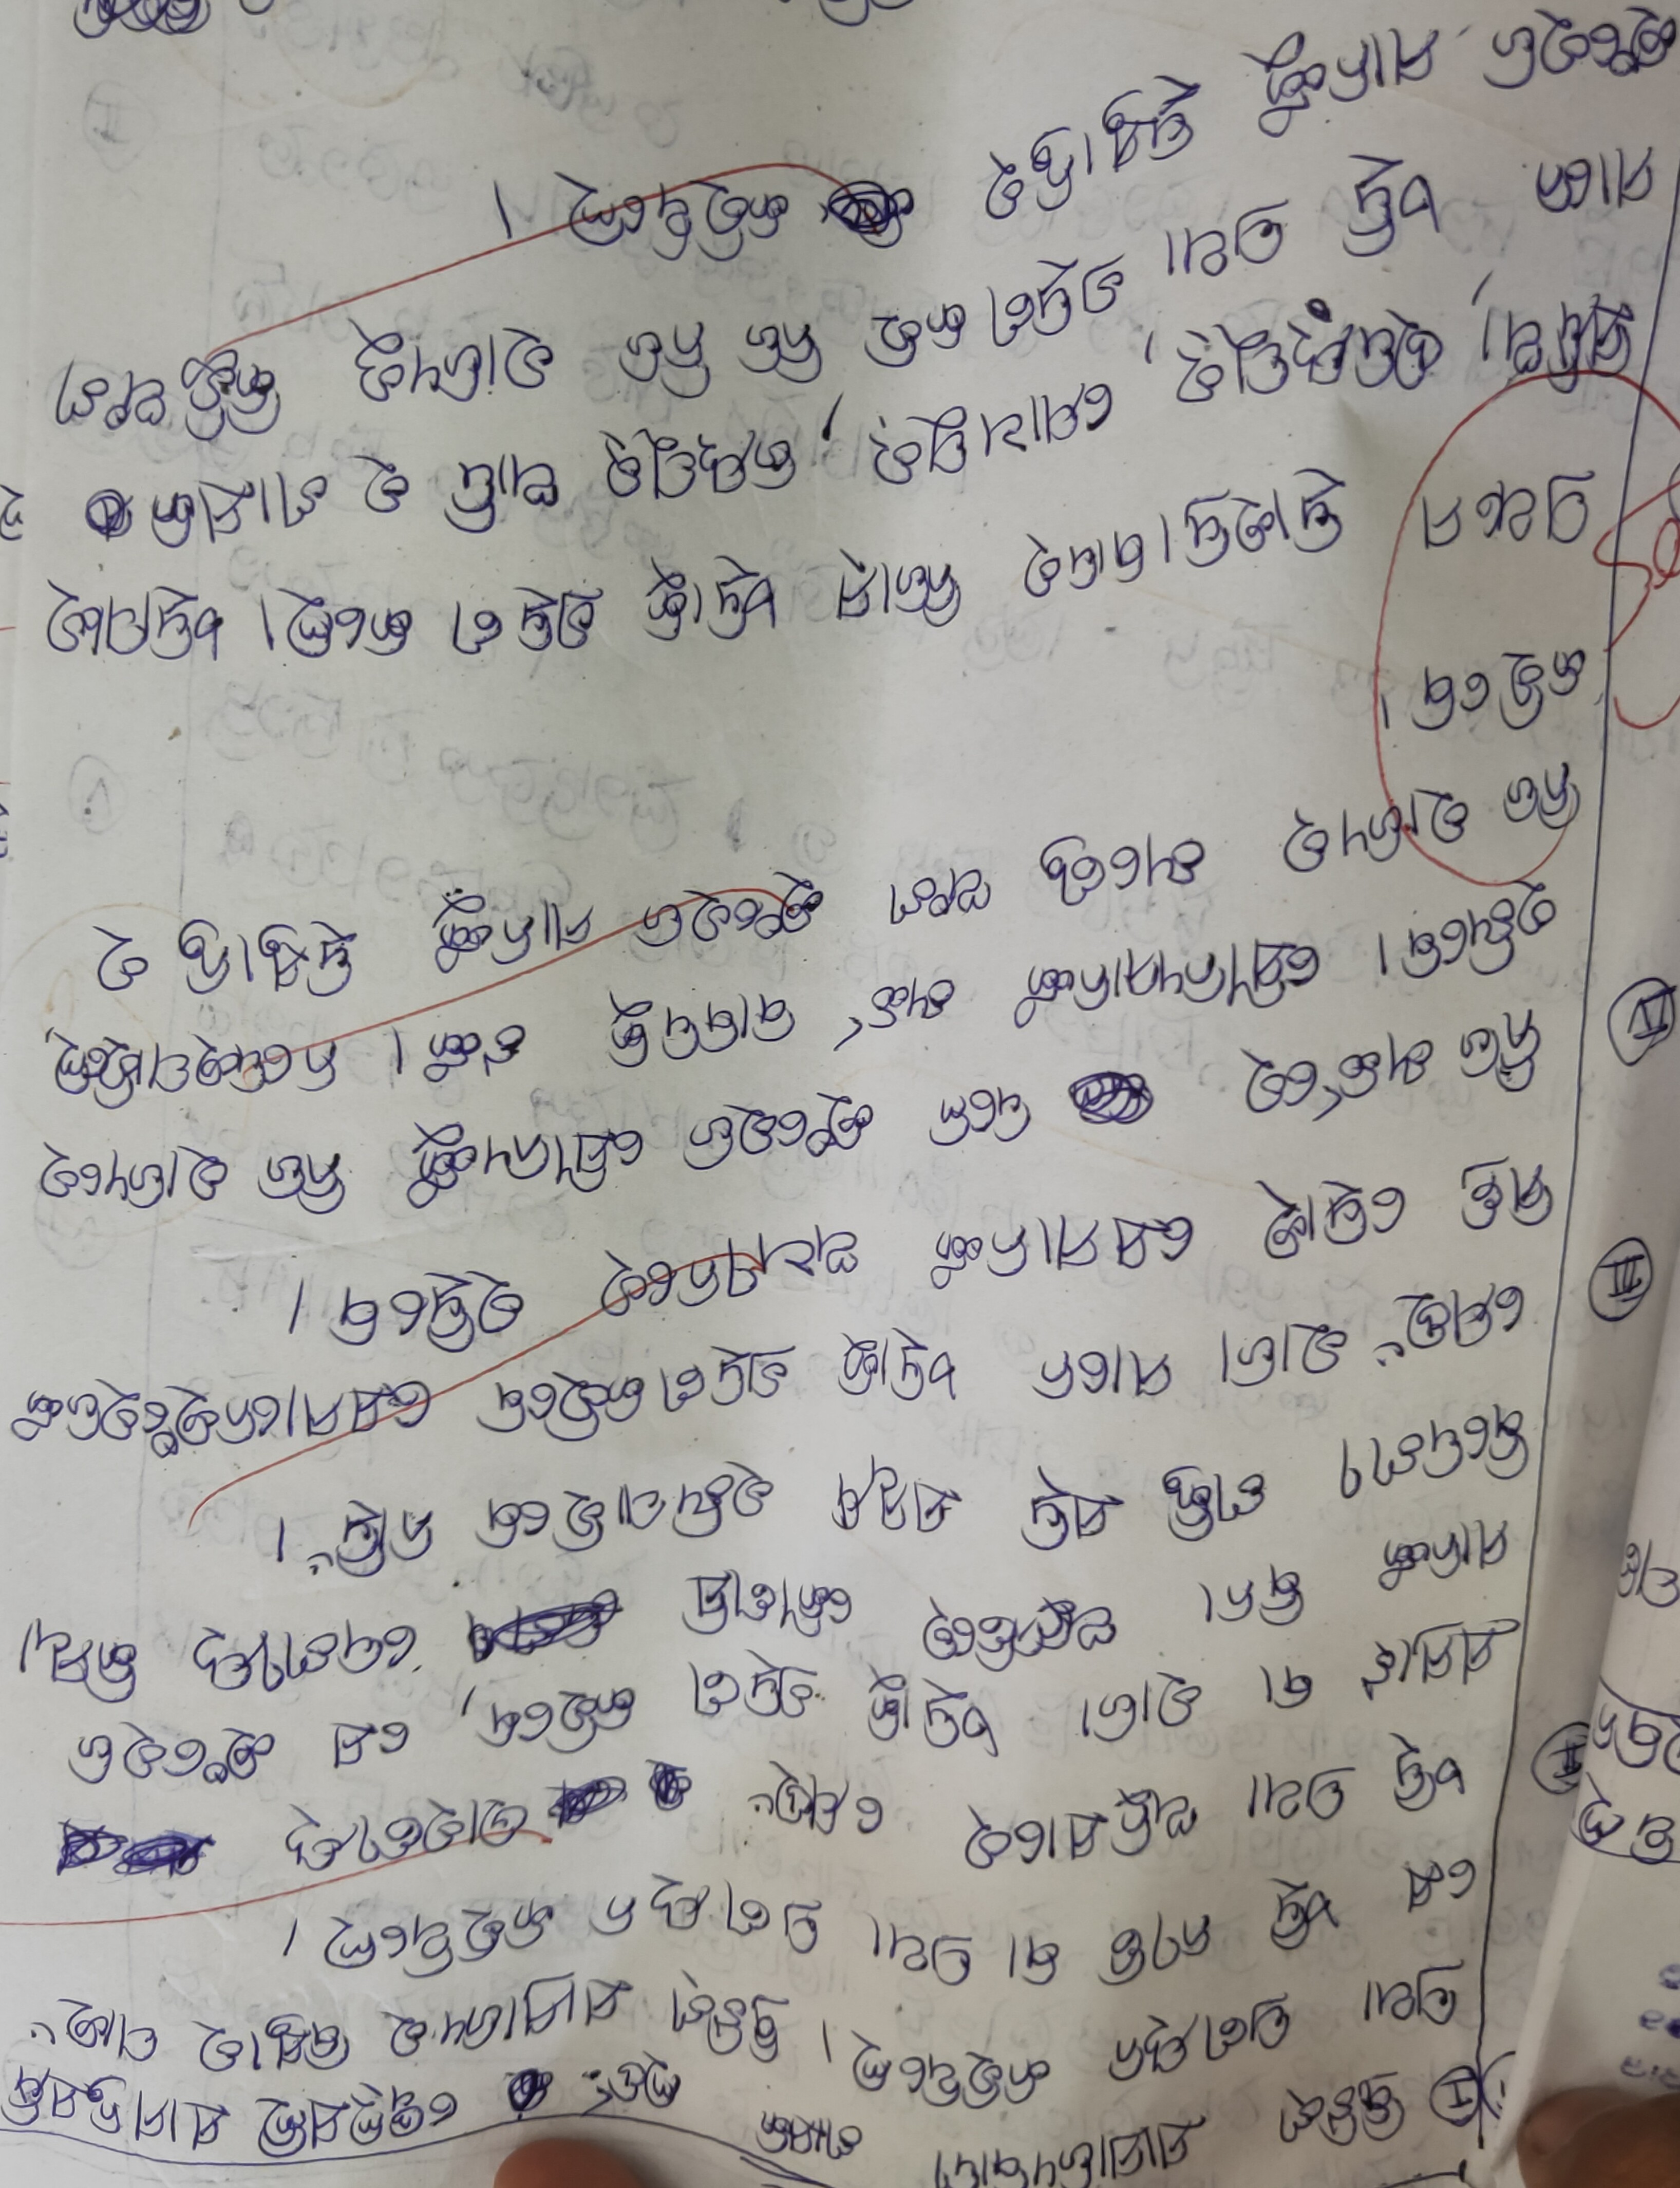 I ବ୍ରିଟିଶ ସାମ୍ରାଜ୍ୟବାଦୀ ଶାସକ ଲର୍ଡ ୱେଲ୍‌ସଲି ସାମନ୍ତସନ୍ଧି
ପ୍ରଥା ପ୍ରଣୟନ କରିଥିଲେ। ବ୍ରିଟିଶ୍ ସାମ୍ରାଜ୍ୟର ବିସ୍ତାର ପାଇଁ
ସେ ଏହି ନୀତି ବା ପ୍ରଥା ପ୍ରଣୟନ କରିଥିଲେ।
II ଏହି ପ୍ରଥା ଅନୁସାରେ ଯେଉଁ ଭାରତୀୟ
ସମ୍ରାଟ ବା ରାଜା ଏହାକୁ ଗ୍ରହଣ କରିବେ, ସେ ଇଂରେଜ
ମାନଙ୍କ ବିନା ଅନୁମତିରେ କୌଣସି ଦେଶୀୟ କିମ୍ବା
ବିଦେଶୀ ଶକ୍ତି ସହ ସମ୍ବନ୍ଧ ରଖିପାରିବେ ନାହିଁ।
III ଯେଉଁ ରାଜା ମାନେ ଏହାକୁ ଗ୍ରହଣ କରିବେ ସେମାନେ ଇଂରେଜଙ୍କ
ମିତ୍ର ହୋଇ ସେମାନଙ୍କ ଅଧୀନରେ ରହିବେ।
IV ନିଜ ଖର୍ଚ୍ଚରେ ଦଳେ ଇଂରେଜ ସୈନ୍ୟଙ୍କୁ ନିଜ ରାଜ୍ୟରେ
ରଖିବେ। ସୈନ୍ୟମାନଙ୍କ ଖର୍ଚ୍ଚ ବାବଦକୁ ଟଙ୍କା ନଦେଇପାରିଲେ,
ନିଜ ରାଜ୍ୟର ଖଣ୍ଡେ ଅଂଶ ଇଂରେଜ ମାନଙ୍କୁ ହସ୍ତାନ୍ତର
କରିବେ।
ପ୍ରଥମେ ହାଇଦ୍ରାବାଦର ନିଜାମ୍ ଏହାକୁ ଗ୍ରହଣ କଲେ। ଏହାପରେ
ସିନ୍ଧିଆ, ଉଦୟପୁର୍, ଯୋଧପୁର୍, ଜୟପୁର୍ ଆଦି ର ଶାସକ
ମାନେ ଏହି ପ୍ରଥା ଗ୍ରହଣ କରି ନିଜ ନିଜ ରାଜ୍ୟରୁ କିଛି ଅଂଶ
ଇଂରେଜ ମାନଙ୍କୁ ହସ୍ତାନ୍ତିର କରିଥିଲେ।